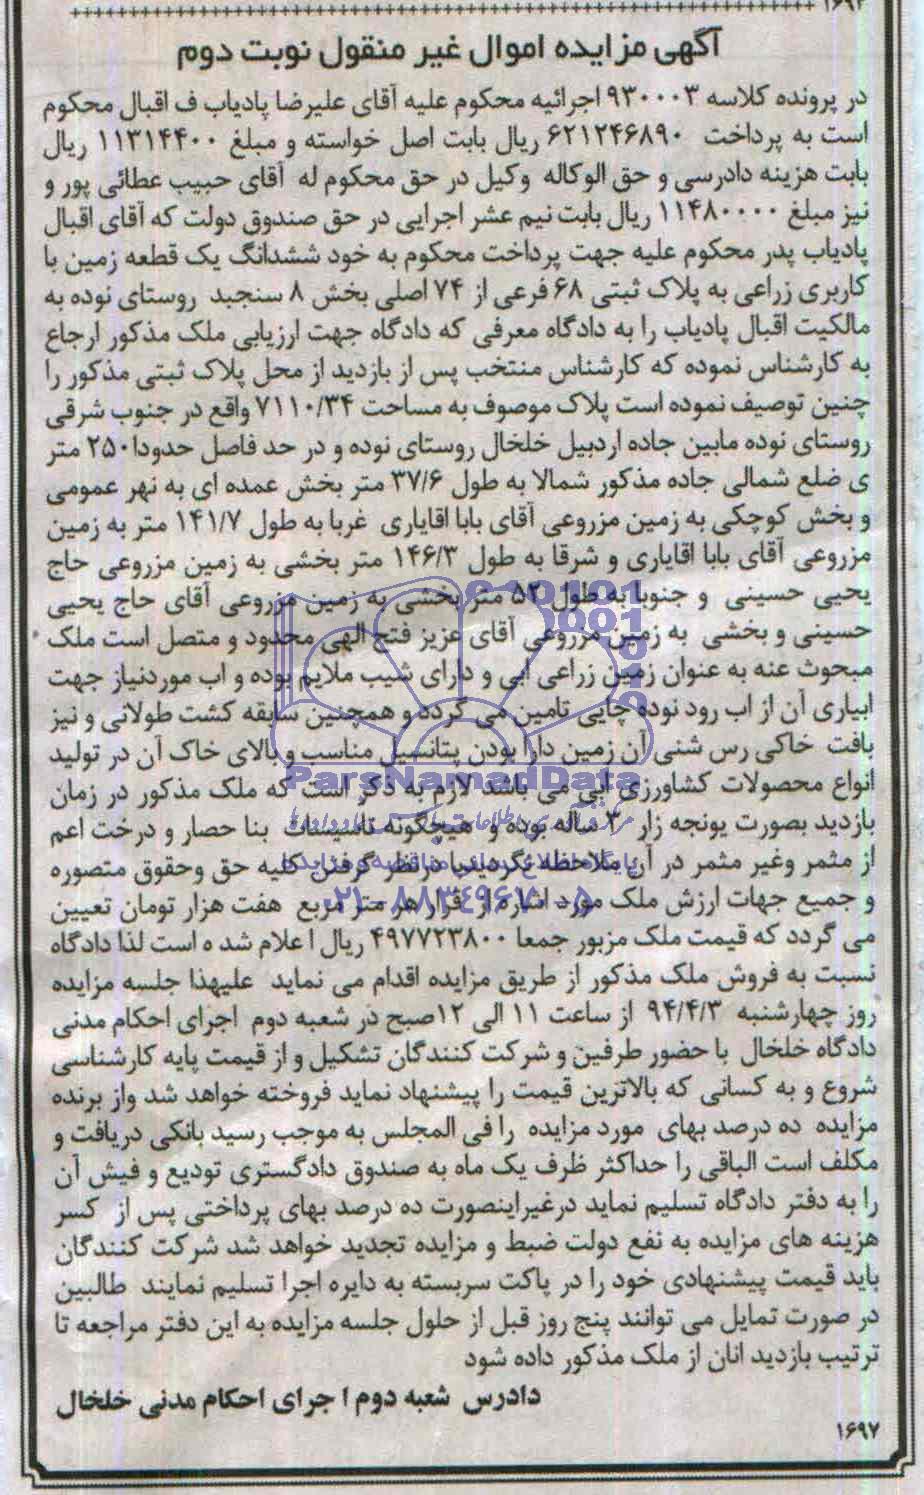 ۱۶۹۴
آگهی مزایده اموال غیر منقول نوبت دوم
در پرونده کلاسه ۹۳۰۰۰۳ اجرائیه محکوم علیه آقای علیرضا پادیاب ف اقبال محکوم
است به پرداخت ۶۲۱۲۴۶۸۹۰ ریال بابت اصل خواسته و مبلغ ۱۱۳۱۴۴۰۰ ریال
بابت هزینه دادرسی و حق الوکاله وکیل در حق محکوم له آقای حبیب عطائی پور و
نیز مبلغ ۱۱۴۸۰۰۰۰ ریال بابت نیم عشر اجرایی در حق صندوق دولت که آقای اقبال
پادیاب پدر محکوم علیه جهت پرداخت محکوم به خود ششدانگ یک قطعه زمین با
کاربری زراعی به پلاک ثبتی ۶۸ فرعی از ۷۴ اصلی بخش ۸ سنجبد روستای نوده به
مالکیت اقبال پادیاب را به دادگاه معرفی که دادگاه جهت ارزیابی ملک مذکور ارجاع
به کارشناس نموده که کارشناس منتخب پس از بازدید از محل پلاک ثبتی مذکور را
چنین توصیف نموده است پلاک موصوف به مساحت ۷۱۱۰/۳۴ واقع در جنوب شرقی
روستای نوده مابین جاده اردبیل خلخال روستای نوده و در حد فاصل حدودا۲۵۰ متر
ی ضلع شمالی جاده مذکور شمالا به طول ۳۷/۶ متر بخش عمده ای به نهر عمومی
و بخش کوچکی به زمین مزروعی آقای بابا اقایاری غربا به طول ۱۴۱/۷ متر به زمین
مزروعی آقای بابا اقایاری و شرقا به طول ۱۴۶/۳ متر بخشی به زمین مزروعی حاج
یحیی حسینی و جنوبا به طول ۵۲ متر بخشی به زمین مزروعی آقای حاج یحیی
حسینی و بخشی به زمین مزروعی آقای عزیز فتح الهی محدود و متصل است ملک
مبحوث عنه به عنوان زمین زراعی ابی و دارای شیب ملایم بوده و اب موردنیاز جهت
ابیاری آن از اب رود نوده چایی تامین می گردد و همچنین سابقه کشت طولانی و نیز
بافت خاکی رس شنی آن زمین دارا بودن پتانسیل مناسب و بالای خاک آن در تولید
انواع محصولات کشاورزی ابی می باشد لازم به ذکر است که ملک مذکور در زمان
بازدید بصورت یونجه زار ۳ ساله بوده و هیچگونه تاسیسات بنا حصار و درخت اعم
از مثمر وغیر مثمر در آن ملاحظه نگردید با درنظر گرفتن کلیه حق وحقوق متصوره
و جمیع جهات ارزش ملک مورد اشاره از قرار هر متر مربع هفت هزار تومان تعیین
می گردد که قیمت ملک مزبور جمعا ۴۹۷۷۲۳۸۰۰ ریال اعلام شد ه است لذا دادگاه
نسبت به فروش ملک مذکور از طریق مزایده اقدام می نماید علیهذا جلسه مزایده
روز چهارشنبه ۹۴/۴/۳ از ساعت ۱۱ الی ۱۲صبح در شعبه دوم اجرای احکام مدنی
دادگاه خلخال با حضور طرفین و شرکت کنندگان تشکیل و از قیمت پایه کارشناسی
شروع و به کسانی که بالاترین قیمت را پیشنهاد نماید فروخته خواهد شد واز برنده
مزایده ده درصد بهای مورد مزایده را فی المجلس به موجب رسید بانکی دریافت و
مکلف است الباقی را حداکثر ظرف یک ماه به صندوق دادگستری تودیع و فیش آن
را به دفتر دادگاه تسلیم نماید درغیراینصورت ده درصد بهای پرداختی پس از کسر
هزینه های مزایده به نفع دولت ضبط و مزایده تجدید خواهد شد شرکت کنندگان
باید قیمت پیشنهادی خود را در پاکت سربسته به دایره اجرا تسلیم نمایند طالبین
در صورت تمایل می توانند پنج روز قبل از حلول جلسه مزایده به این دفتر مراجعه تا
ترتیب بازدید انان از ملک مذکور داده شود
دادرس شعبه دوم اجرای احکام مدنی خلخال
۱۶۹۷
ParsNamadData
۰۲۱-۸۸۳۴۹۶۷۰-۵